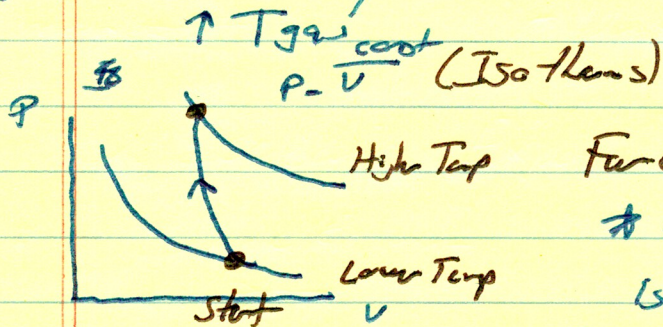 ↑ Tgas
P = const / V (Isotherms)
P
High Temp
Lower Temp
Start V